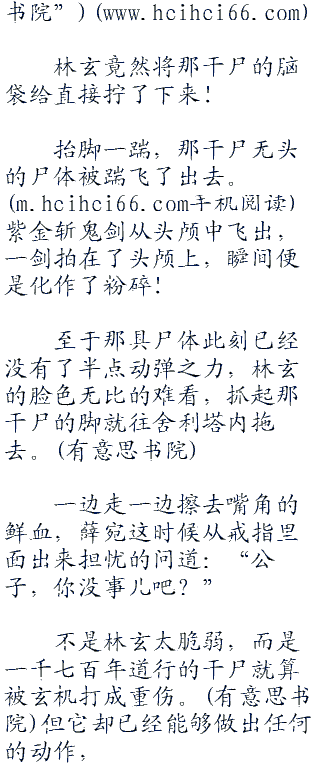 书院”) (www.hcihci66.com)
林玄竟然将那干尸的脑
袋给直接拧了下来！
抬脚一踹，那干尸无头
的尸体被踹飞了出去。
(m.hcihci66.com手机阅读)
紫金斩鬼剑从头颅中飞出，
一剑拍在了头颅上，瞬间便
是化作了粉碎！
至于那具尸体此刻已经
没有了半点动弹之力，林玄
的脸色无比的难看，抓起那
干尸的脚就往舍利塔内拖
去。(有意思书院)
一边走一边擦去嘴角的
鲜血，薛宛这时候从戒指里
面出来担忧的问道：“公
子，你没事儿吧？”
不是林玄太脆弱，而是
一千七百年道行的干尸就算
被玄机打成重伤。(有意思书
院)但它却已经能够做出任何
的动作，